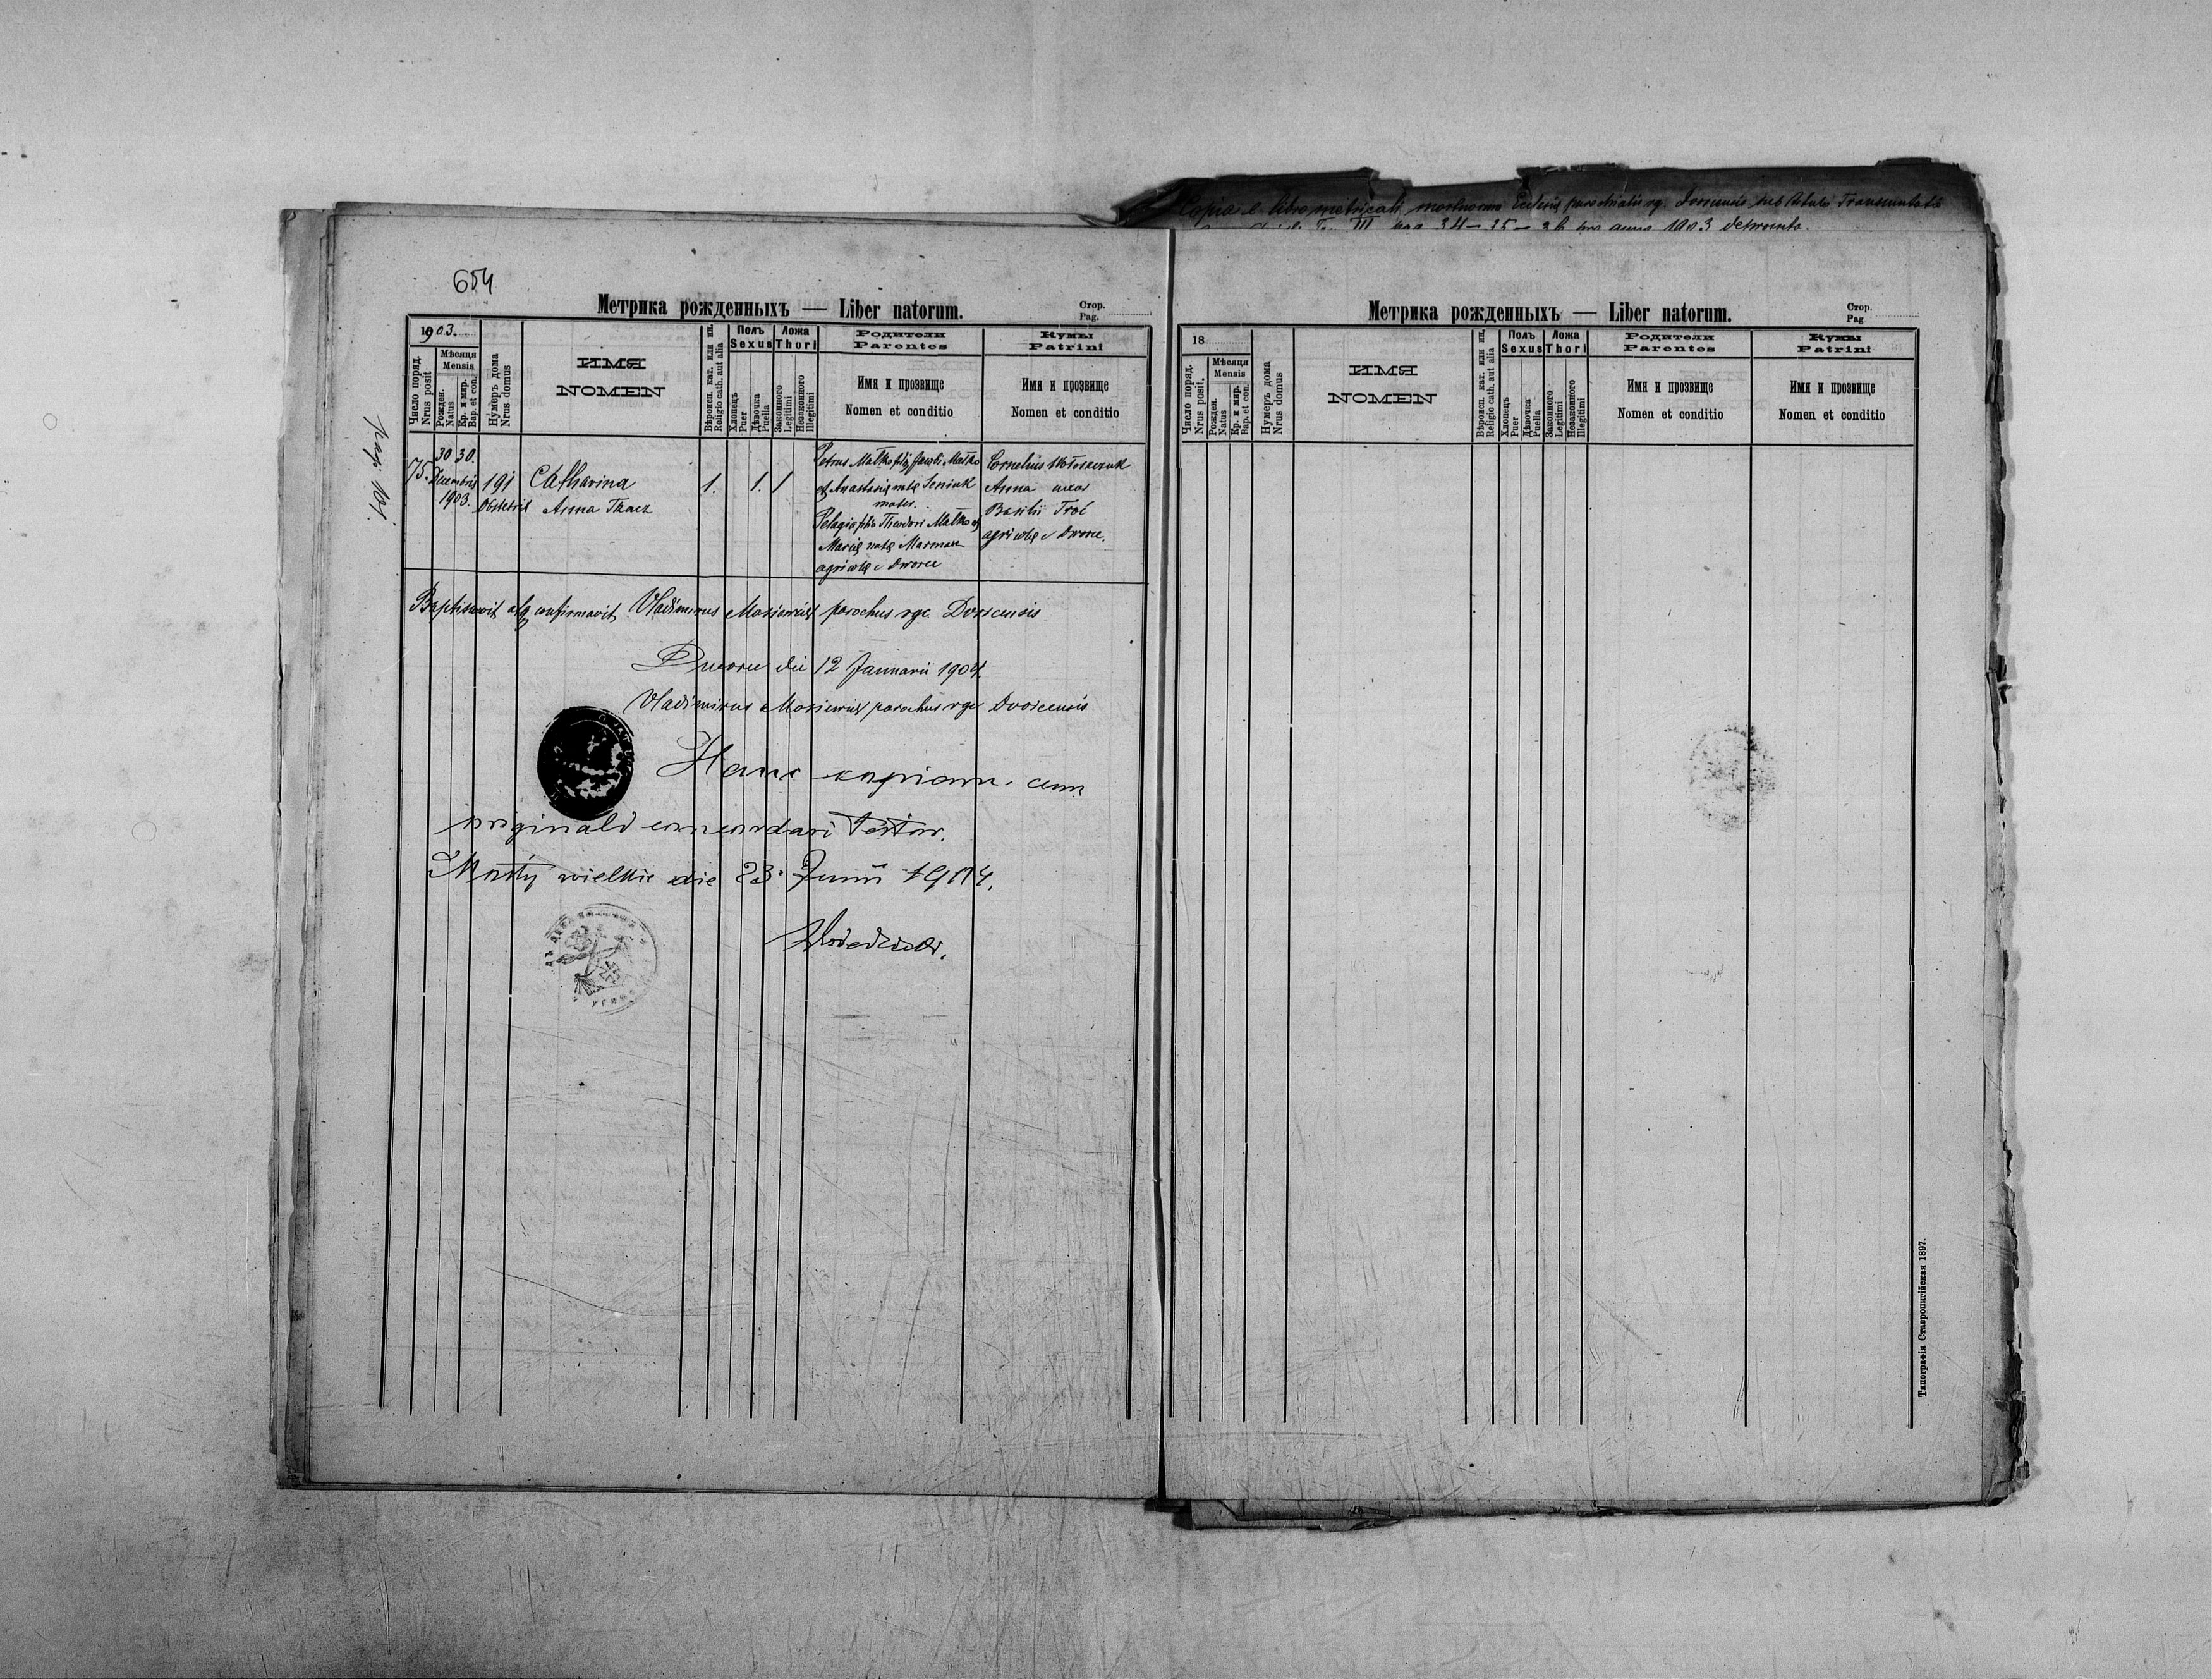 Copia e libro metricali mortuorum Ecclesiae parochialis rg. Dvorcensis sub titulo
III pag 34 – 35 – 36 pro anno 1903 deprompta.
654
Метрика рожденныхъ — Liber natorum.
Стор.
Pag.
1903.
Число поряд.
Nrus posit
Мѣсяця
Mensis
Рожден.
Natus
Кр. и мир.
Bap. et con.
Нумеръ дома
Nrus domus
ИМЯ
NOMEN
Вѣроисп. кат. или ин.
Religio cath. aut alia
Полъ
Sexus
Хлопець
Puer
Дѣвочка
Puella
Ложа
Thori
Законного
Legitimi
Незаконного
Illegitimi
Родители
Parentes
Имя и прозвище
Nomen et conditio
Кумы
Patrini
Имя и прозвище
Nomen et conditio
pag. 101.
75.
30 30.
Decembris
1903.
191
Obstetrix
Catharina
Anna Tkacz
1.
1.
1
Petrus Małko filius Jacobi Małko
et Anastasiae natae Seniuk
mater.
Pelagia filia Theodori Małko et
Mariae natae Marman
agricolae e Dworce
Cornelius Wołoszczuk
Anna uxor
Basilii Troć
agricolae e Dworce.
Baptisavit atq confirmavit Vladimirus parochus rgc. Dvorcensis
Dworce die 12 Januarii 1904.
Vladimirus parochus rgc Dvorcensis
Hanc copiam cum
originali concordari testor.
Mosty wielkie die 23. Junii 1904.
Метрика рожденныхъ — Liber natorum.
Стор.
Pag
18
Число поряд.
Nrus posit.
Мѣсяця
Mensis
Рожден.
Natus
Кр. и мир.
Bap. et con.
Нумеръ дома
Nrus domus
ИМЯ
NOMEN
Вѣроисп. кат. или ин.
Religio cath. aut alia
Полъ
Sexus
Хлопець
Puer
Дѣвочка
Puella
Ложа
Thori
Законного
Legitimi
Незаконного
Illegitimi
Родители
Parentes
Имя и прозвище
Nomen et conditio
Кумы
Patrini
Имя и прозвище
Nomen et conditio
Типографія Ставропигійская 1897.